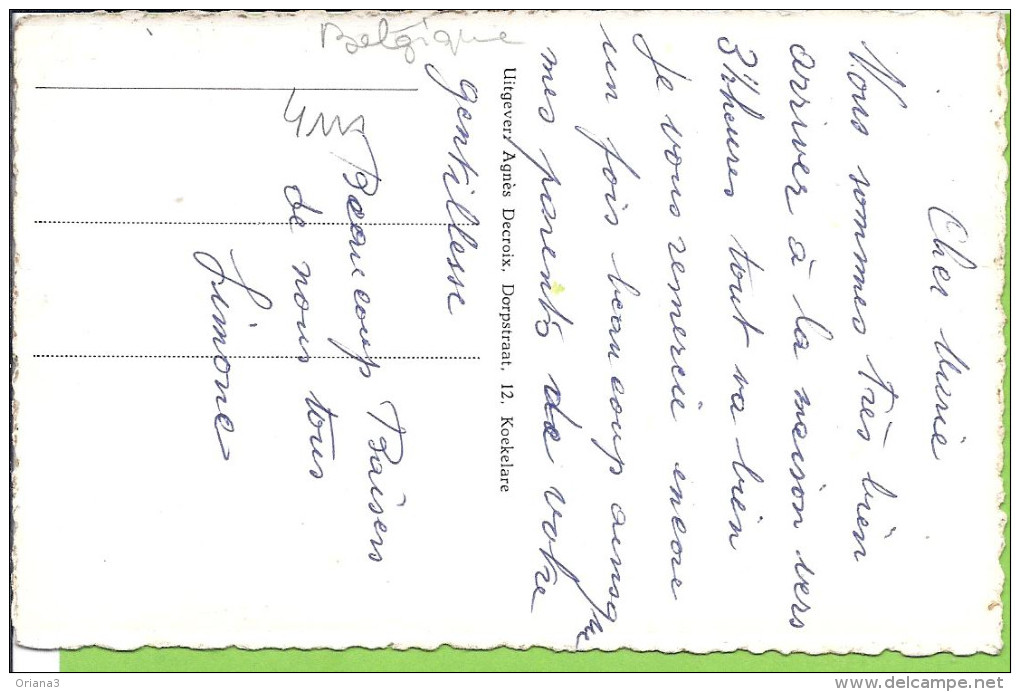 Cher Marie
Nous sommes très bien
arriver à la maison vers
3 heures tout va bien
Je vous remercie encore
un fois beaucoup ainsq
mes parents de votre
gentillesse
Beaucoup Baisers
de nous tous
Simone
Uitgever: Agnès Decroix, Dorpstraat, 12, Koekelare
Belgique
Oriana3
www.delcampe.net